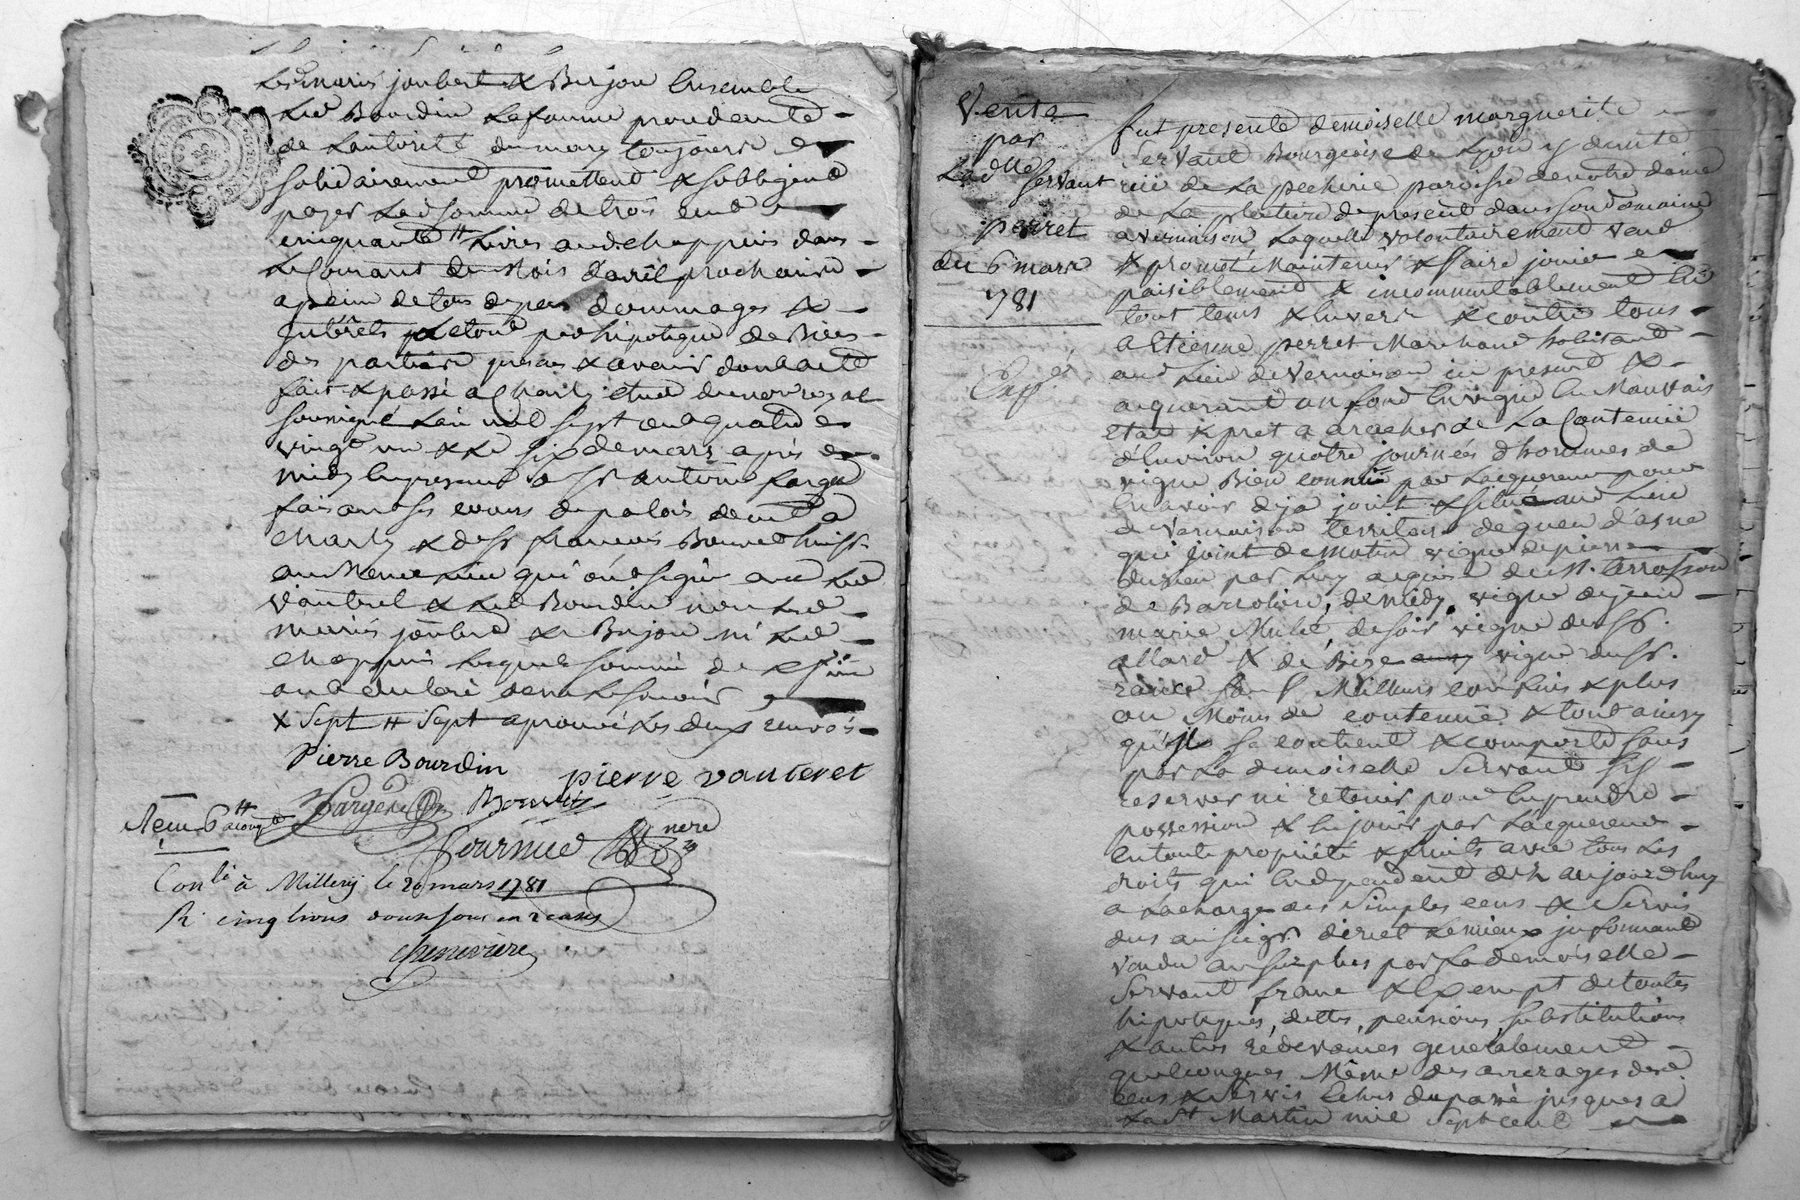 Lesd mariés joubert & Berjou Ensemble
Led Bourdin La femme procedente
de Lautorité du mary toujours
solidairement promettent & sobligent
payer Lad somme de trois cent
cinquante # Livres aud chappuis dans
Le Courant du Mois d'avril prochain
a peine de tous depens dommages &
Interets & par hipoteque de Biens
des parties presens & avenir dont acte
fait & passé a Charly etude du notaire
soussigné L'an mil sept cent quatre
vingt un & Le six de mars après
midy En presence de Sr antoine fargue
cours du palais demt a
Charly & de Sr francois Bonnet
aud Lieu qui ont signé avec Led
Vanteret & Led Bourdin non Lesd
mariés joubert & Berjou ni Led
chappuis Lesquels sommé de
ont déclaré ne Le savoir
& Sept # Sept aprouvé Les deux renvois
Pierre Bourdin
pierre vanteret
fargue
Con.lé à Millery le 20 mars 1781
R. cinq livres douze sous
Chenevière
Vente
par
La dlle
Servant
a
perret
du 6 mars
1781
Exp.é
fut presente demoiselle marguerite
Servant Bourgeoise de Lyon y demte
rüe de La pecherie paroisse de notre dame
de La platiere de present dans son domaine
a vernaison Laquelle volontairement vend
& promet Maintenir & faire jouir
paisiblement & incommutablement En
tout tems & Envers & contre tous
a Etienne perret Marchand habitant
aud Lieu de Vernaison icy present &
aquerant un fond En vigne En Mauvais
Etat & pret a aracher de La Contenüe
d'Environ quatre journées d'hommes de
vigne Bien connüe par Lacquereur pour
En avoir deja jouit & situé aud Lieu
de Vernaison territoire de queu d'asne
qui joint de Matin vigne de pierre
par Luy aquise de M. terrasson
de Barolière, de Midy, vigne de jean
marie Mulet, de soir vigne de Sr.
allard & de Bize vigne du Sr.
sauf Meilleurs confins & plus
ou Moins de contenüe & tout ainsy
qu'il se contient & comporte sans
par La demoiselle Servant s'y
reserver ni retenir pour En prendre
possession & En jouir par Lacquereur
En toute propriété & fruits avec tous Les
droits qui En dependent des aujourdhuy
a La charge des Simples cens & Servis
dus au seigr. direct Le mieux informant
vendu au surplus par La demoiselle
Servant franc & Exempt de toutes
hipoteques, dettes, pensions, substitutions
& autres rédevances generalement
quelconques Même des arrerages desd
cens & Servis Echus du passé jusques a
La St Martin mil Sept cent